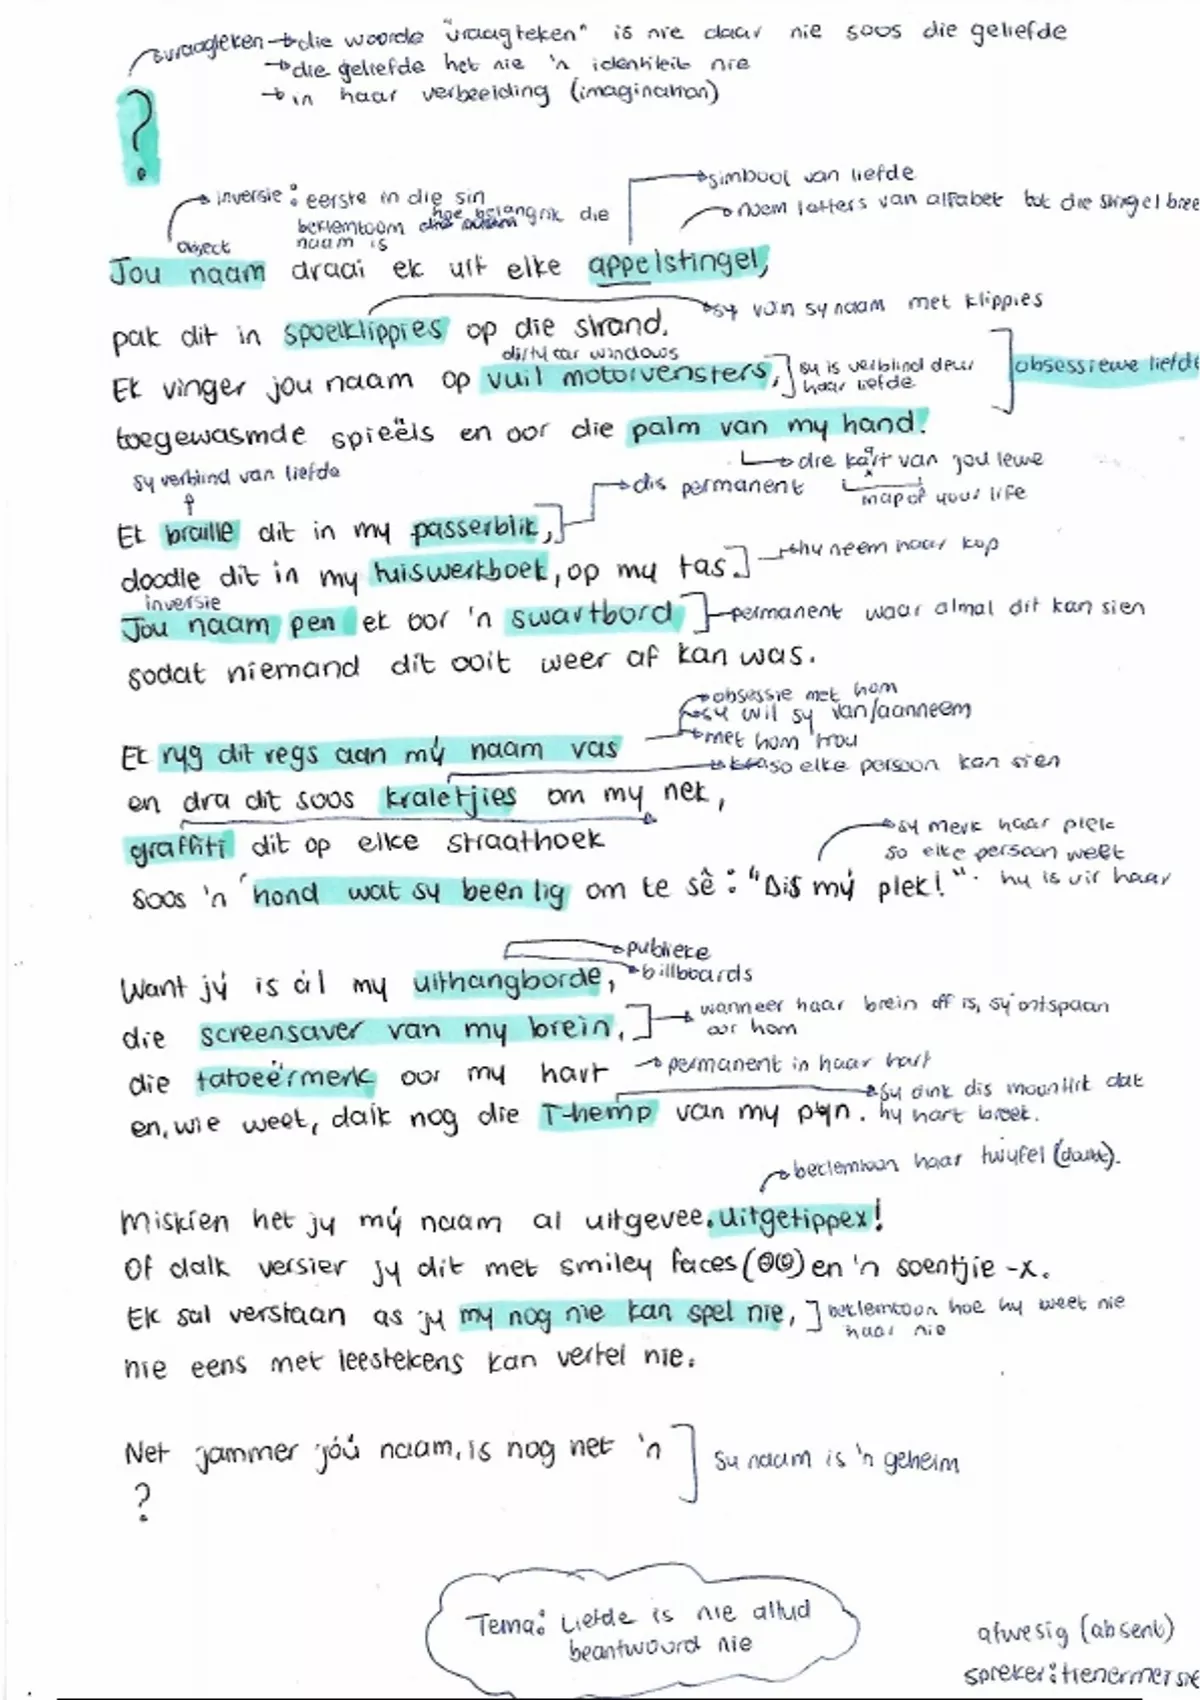 vraagteken → die woorde "vraagteken" is nie daar nie soos die geliefde
→ die geliefde het nie 'n identiteit nie
→ in haar verbeelding (imagination)
?
→ simbool van liefde
→ inversie: eerste in die sin
→ noem letters van alfabet tot die stingel bree
beklemtoom hoe belangrik die
naam is
object
Jou naam draai ek uit elke appelstingel,
→ sy van sy naam met klippies
pak dit in spoelklippies op die strand.
dirty car windows
Ek vinger jou naam op vuil motorvensters,
sy is verblind deur
haar liefde
obsessiewe liefde
toegewasmde spieëls en oor die palm van my hand.
→ die kart van jou lewe
map of your life
sy verblind van liefde
→ dis permanent
Ek braille dit in my passerblik,
doodle dit in my huiswerkboek, op my tas.
→ hy neem haar kop
inversie
Jou naam pen ek oor 'n swartbord
permanent waar almal dit kan sien
sodat niemand dit ooit weer af kan was.
→ obsessie met hom
→ sy wil sy van/aanneem
→ met hom trou
Ek ryg dit regs aan mý naam vas
so elke persoon kan sien
en dra dit soos kraletjies om my nek,
graffiti dit op elke straathoek
→ sy merk haar plek
so elke persoon weet
hy is vir haar
soos 'n hond wat sy been lig om te sê: "Dis mý plek!".
→ publieke
→ billboards
Want jý is ál my uithangborde,
die screensaver van my brein,
→ wanneer haar brein off is, sy ontspaan
oor hom
die tatoeërmerk oor my hart
→ permanent in haar hart
en, wie weet, dalk nog die T-hemp van my pyn.
→ sy dink dis moontlik dat
hy hart breek.
→ beklemtoon haar twyfel (doubt).
Miskien het jy mý naam al uitgevee. uitgetippex!
Of dalk versier jy dit met smiley faces (☺☺) en 'n soentjie -x.
Ek sal verstaan as jy my nog nie kan spel nie,
beklemtoon hoe hy weet nie
haar nie
nie eens met leestekens kan vertel nie.
Net jammer jóú naam, is nog net 'n
?
sy naam is 'n geheim
Tema: Liefde is nie altyd
beantwoord nie
afwesig (absent)
spreker: tienermeisie